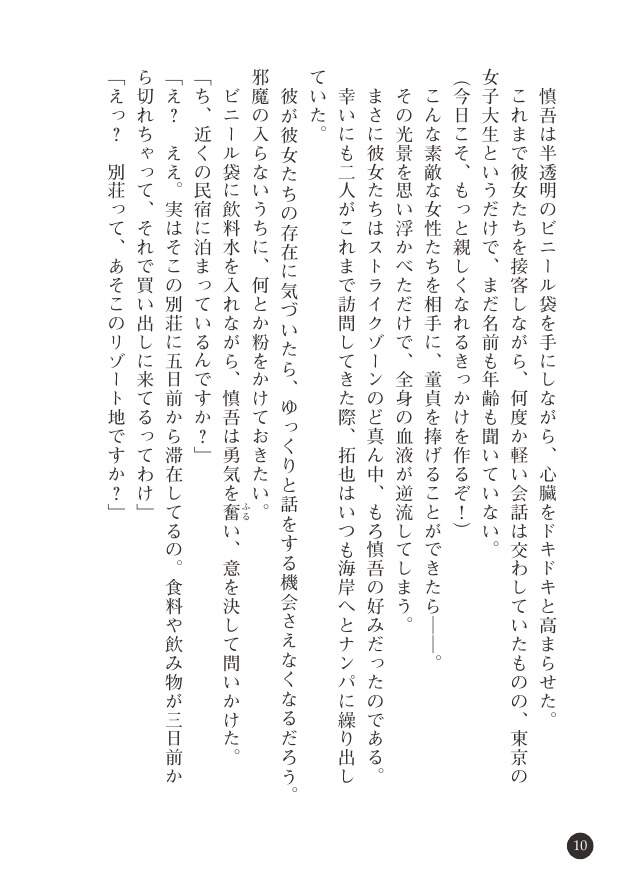 慎吾は半透明のビニール袋を手にしながら、心臓をドキドキと高まらせた。
これまで彼女たちを接客しながら、何度か軽い会話は交わしていたものの、東京の
女子大生というだけで、まだ名前も年齢も聞いていない。
（今日こそ、もっと親しくなれるきっかけを作るぞ！）
こんな素敵な女性たちを相手に、童貞を捧げることができたら――。
その光景を思い浮かべただけで、全身の血液が逆流してしまう。
まさに彼女たちはストライクゾーンのど真ん中、もろ慎吾の好みだったのである。
幸いにも二人がこれまで訪問してきた際、拓也はいつも海岸へとナンパに繰り出し
ていた。
彼が彼女たちの存在に気づいたら、ゆっくりと話をする機会さえなくなるだろう。
邪魔の入らないうちに、何とか粉をかけておきたい。
ビニール袋に飲料水を入れながら、慎吾は勇気を奮ふるい、意を決して問いかけた。
「ち、近くの民宿に泊まっているんですか？」
「え？　ええ。実はそこの別荘に五日前から滞在してるの。食料や飲み物が三日前か
ら切れちゃって、それで買い出しに来てるってわけ」
「えっ？　別荘って、あそこのリゾート地ですか？」
10